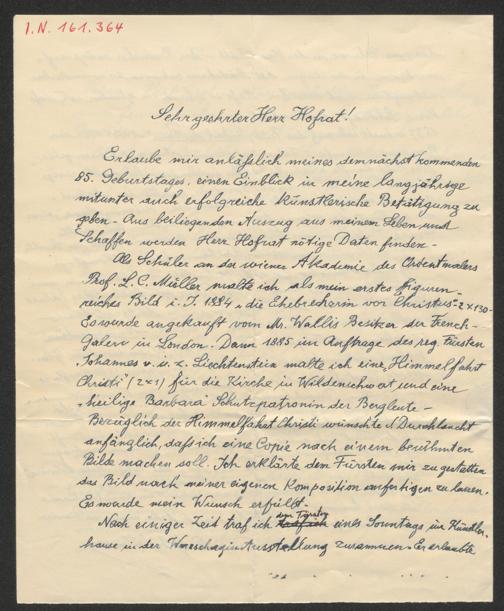 I.N. 161.364
Sehr geehrter Herr Hofrat!
Erlaube mir anläßlich meines demnächst kommenden
85. Geburtstages, einen Einblick in meine langjährige
mitunter auch erfolgreiche künstlerische Betätigung zu
geben - Aus beiliegenden Auszug aus meinem Leben und
Schaffen werden Herr Hofrat nötige Daten finden -
Als Schüler an der wiener Akademie des Orientmalers
Prof. L. C. Müller malte ich als mein erstes figuren-
reiches Bild i. J. 1884 „die Ehebrecherin vor Christus" 2 x 130 -
Es wurde angekauft vom Mr. Wallis Besitzer der French-
Galery in London. Dann 1885 im Auftrage des reg. Fürsten
Johannes v. u. z. Liechtenstein malte ich eine „Himmelfahrt
Christi" (2x1) für die Kirche in und eine
„heilige Barbara" Schutzpatronin der Bergleute -
Bezüglich der Himmelfahrt Christi wünschte Durchlaucht
anfänglich, daß ich eine Copie nach einem berühmten
Bilde machen soll. Ich erklärte dem Fürsten mir zu gestatten
das Bild nach meiner eigenen Komposition anfertigen zu lassen.
Es wurde mein Wunsch erfüllt -
Nach einiger Zeit traf ich den Fürsten eines Sonntags im Künstler-
hause in der Ausstellung zusammen - Er erlaubte